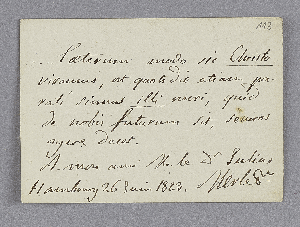 113
Caeterum modo sic Christo
vivamus, ut quotidie etiam pa-
rati simus illi mori, quid
de nobis futurum sit, securos
agere decet.
A mon ami Mr le Dr Julius
Hambourg 26 Juin 1823. Merle